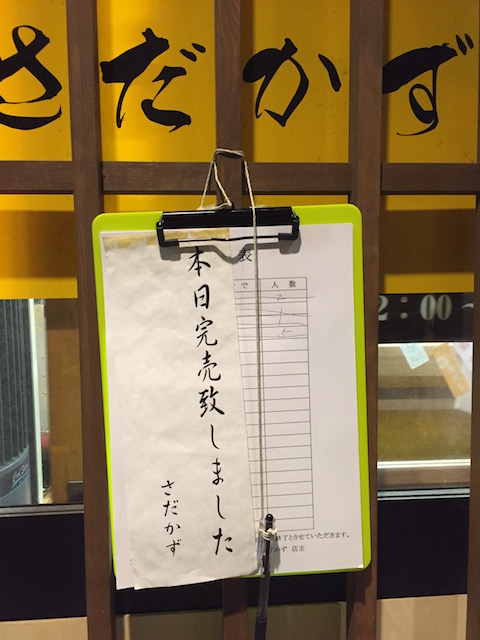 さだかず
本日完売致しました
さだかず
表
で 人数
2
1
5
2:00
終了とさせていただきます。
かず 店主